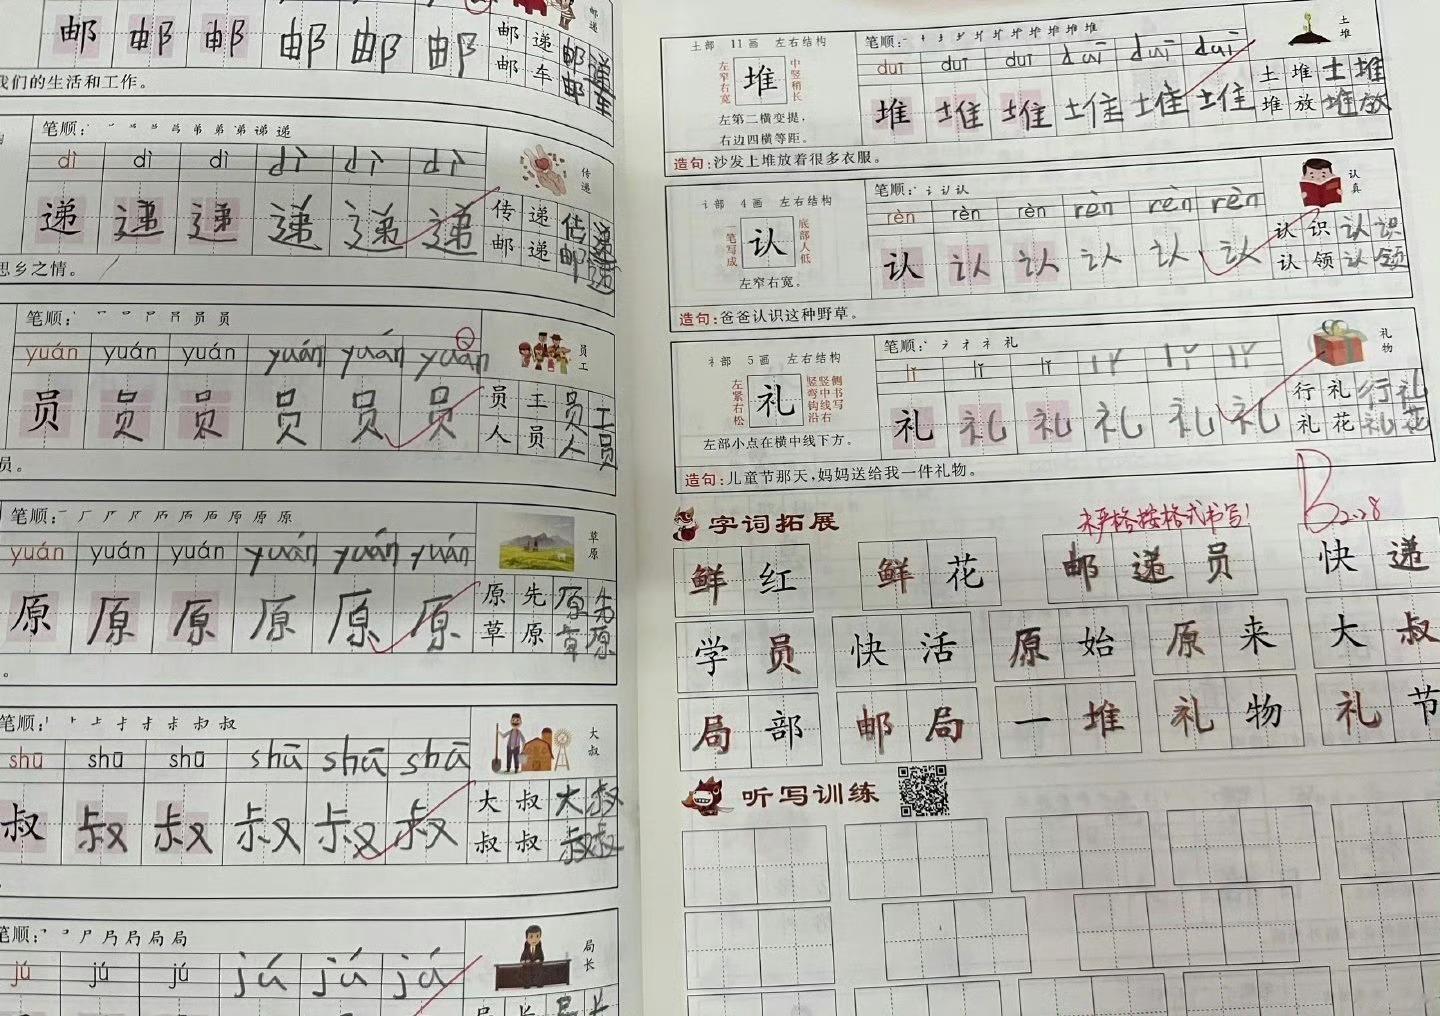 邮 邮 邮 邮 邮 邮 邮 递 邮 递
邮 车 邮 车
邮递
我们的生活和工作。
笔顺:
dì dì dì dì dì dì
传递
递 递 递 递 递 递 传 递 传 递
邮 递 邮 递
思乡之情。
笔顺:
yuán yuán yuán yuán yuán yuán
员工
员 员 员 员 员 员 员 工 员 工
人 员 人 员
员。
笔顺:
yuán yuán yuán yuán yuán yuán
草原
原 原 原 原 原 原 原 先 原 先
草 原 草 原
笔顺:
shū shū shū shū shū shū
大叔
叔 叔 叔 叔 叔 叔 大 叔 大 叔
叔 叔 叔 叔
笔顺:
jú jú jú jú jú jú
局长
局 长 局 长
土部 11画 左右结构
左窄右宽 堆 中竖稍长
左第二横变提,
右边四横等距。
笔顺:
duī duī duī duī duī duī
土堆
堆 堆 堆 堆 堆 堆 土 堆 土 堆
堆 放 堆 放
造句:沙发上堆放着很多衣服。
讠部 4画 左右结构
一笔写成 认 底部人低
左窄右宽。
笔顺:
rèn rèn rèn rèn rèn rèn
认真
认 认 认 认 认 认 认 识 认 识
认 领 认 领
造句:爸爸认识这种野草。
礻部 5画 左右结构
左紧右松 礼 竖弯钩沿竖中线右侧书写
左部小点在横中线下方。
笔顺:
lǐ lǐ lǐ lǐ lǐ lǐ
礼物
礼 礼 礼 礼 礼 礼 行 礼 行 礼
礼 花 礼 花
造句:儿童节那天,妈妈送给我一件礼物。
字词拓展
严格按格式书写!
B 2.28
鲜 红 鲜 花 邮 递 员 快 递
学 员 快 活 原 始 原 来 大 叔
局 部 邮 局 一 堆 礼 物 礼 节
听写训练